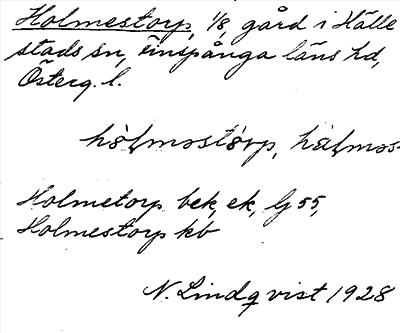 Holmestorp, 1/8, gård i Hälle
stads sn, Finspånga läns hd,
Österg. l.
Holmetorp bek, ek, Gj 55,
Holmestorp kb
N. Lindqvist 1928